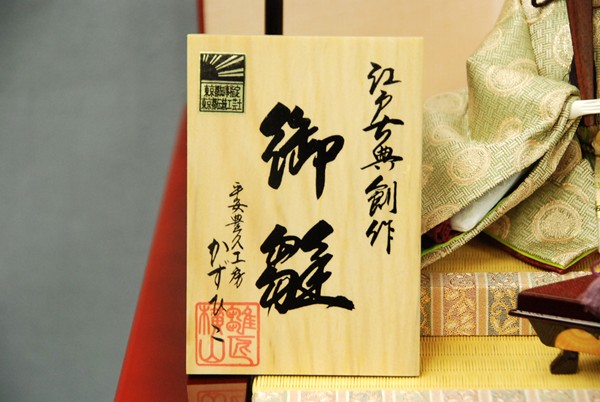 江戸古典創作
御雛
平安豊久工房
かずひこ
東京都知事指定
東京都伝統工芸士
雛匠
横山